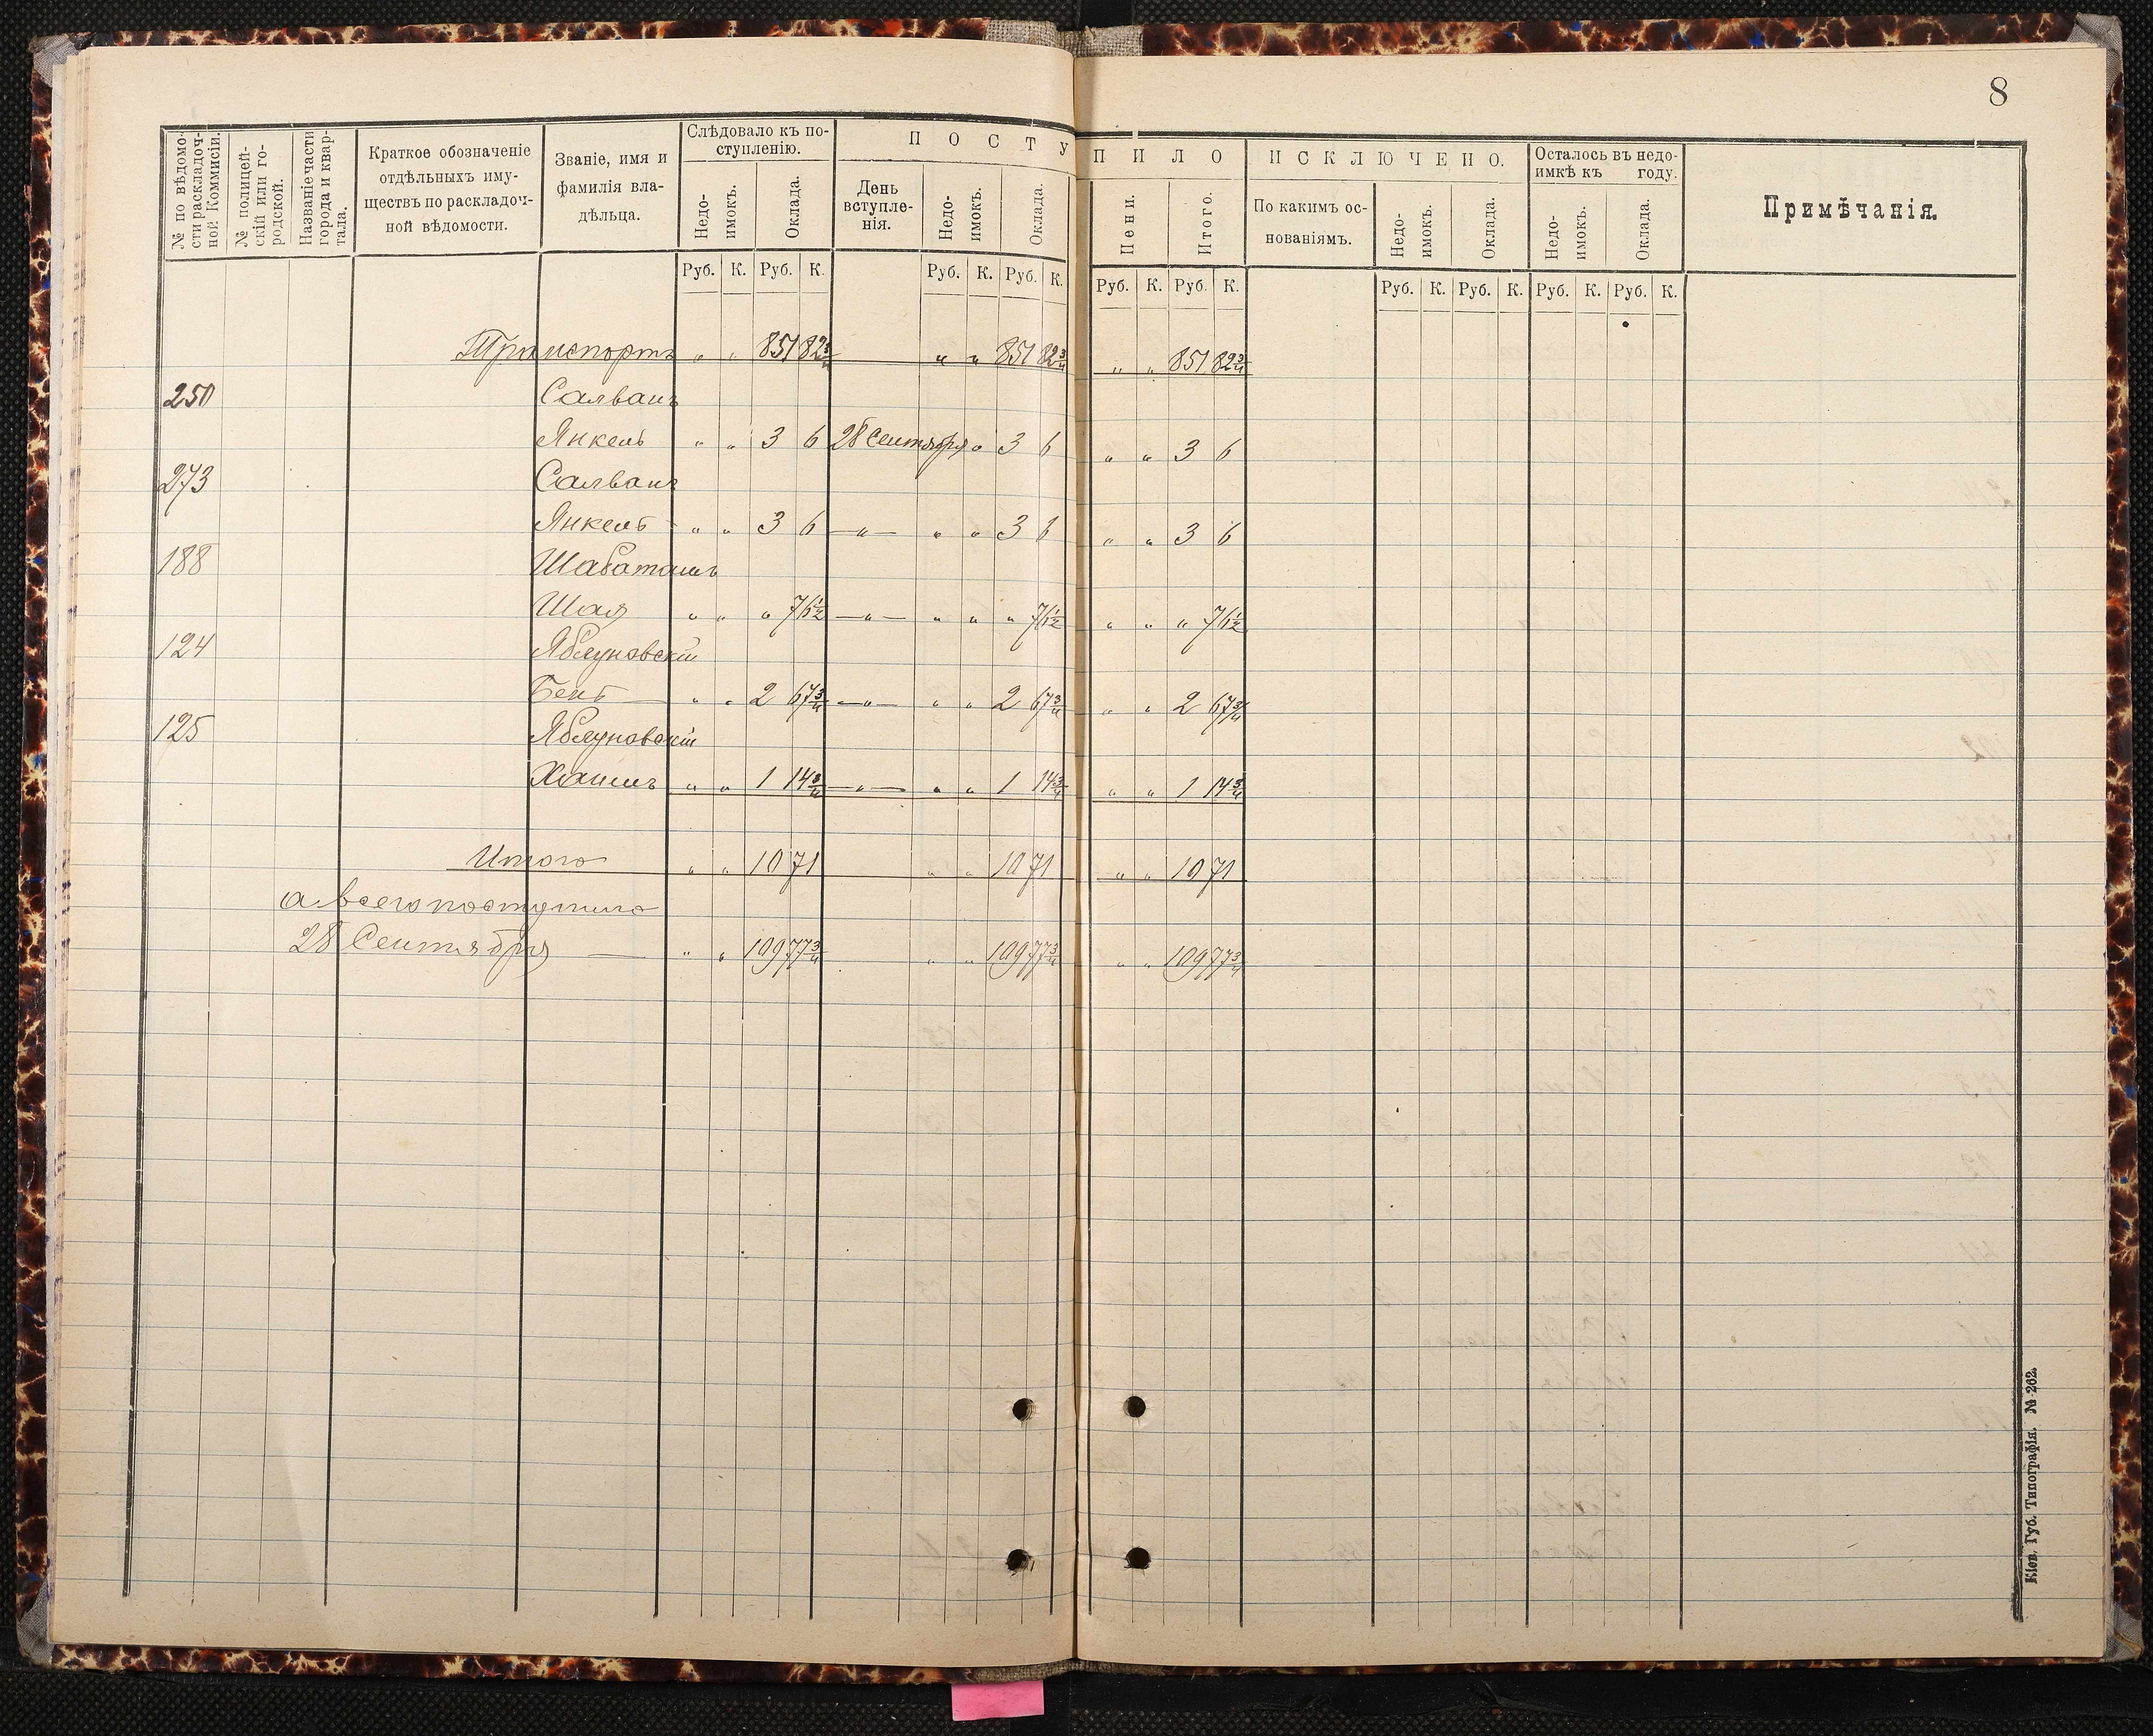 8
№ по вѣдомо-
сти раскладоч-
ной Коммисіи.
№ полицей-
скій или го-
родской.
Названіе части
города и квар-
тала.
Краткое обозначеніе
отдѣльныхъ иму-
ществъ по раскладоч-
ной вѣдомости.
Званіе, имя и
фамилія вла-
дѣльца.
Слѣдовало къ по-
ступленію.
Недо-
имокъ.
Оклада.
ПОСТУПИЛО
День
вступле-
нія.
Недо-
имокъ.
Оклада.
Пени.
Итого.
ИСКЛЮЧЕНО.
По какимъ ос-
нованіямъ.
Недо-
имокъ.
Оклада.
Осталось въ недо-
имкѣ къ году.
Недо-
имокъ.
Оклада.
Примѣчанія.
Руб. К. Руб. К. Руб. К. Руб. К. Руб. К. Руб. К. Руб. К. Руб. К. Руб. К. Руб. К.
Транспортъ " " 851 82¾ " " 851 82¾ " " 851 82¾
250 Салванъ
Янкель " " 3 6 28 Сентября " 3 6 " " 3 6
273 Салванъ
Янкель " " 3 6 —"— " " 3 6 " " 3 6
188
Шая " " " 76½ —"— " " " 76½ " " " 76½
124 Яблуновскій
" " 2 67¾ —"— " " 2 67¾ " " 2 67¾
125 Яблуновскій
Хаимъ " " 1 14¾ —"— " " 1 14¾ " " 1 14¾
Итого " " 10 71 " " 10 71 " " 10 71
а всего поступило
28 Сентября — " " 109 77¾ " " 109 77¾ " " 109 77¾
Кіев. Губ. Типографія. № 262.